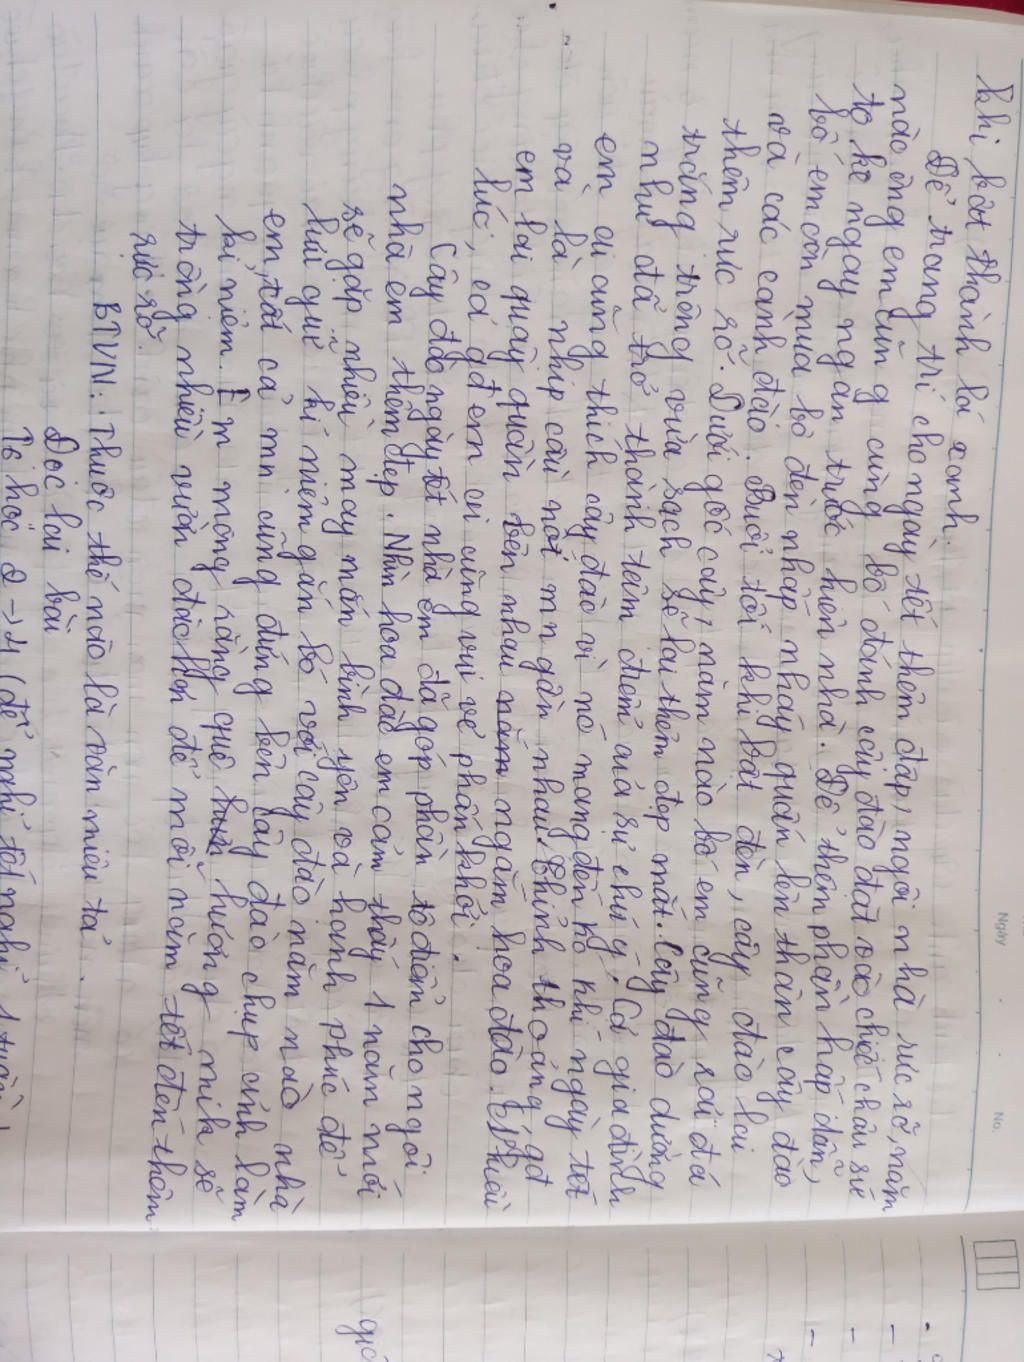 Ngày
No.
khi kết thành lá xanh.
Để trang trí cho ngày tết thêm đẹp, ngôi nhà rực rỡ, năm
nào ông em cũng cùng bố đánh cây đào đặt vào chiếc chậu sứ
to ko ngay ngắn trước hiên nhà. Để thêm phần hấp dẫn,
bố em còn mua bộ đèn nhấp nháy quấn lên thân cây đào
và các cành đào. Buổi tối khi bật đèn, cây đào lại
thêm rực rỡ. Dưới gốc cây, năm nào bố em cũng rải đá
trắng trông vừa sạch sẽ lại thêm đẹp mắt. Cây đào dường
như đã trở thành tâm điểm của sự chú ý. Cả gia đình
em ai cũng thích cây đào vì nó mang đến ko khí ngày tết
và là nhịp cầu nối mn gần nhau. Thỉnh thoảng, gđ
em lại quây quần bên nhau ngắm hoa đào. Nhiều
lúc, cả gđ em cười cùng vui vẻ phấn khởi.
Cây đào ngày tết nhà em đã góp phần tô điểm cho ngôi
nhà em thêm đẹp. Nhìn hoa đào em cảm thấy 1 năm mới
sẽ gặp nhiều may mắn bình yên và hạnh phúc để
lưu giữ kỉ niệm gắn bó với cây đào năm nào nhà
em, tất cả mn cũng đứng bên cây đào chụp ảnh làm
kỉ niệm. Em mong rằng quê hương mình sẽ
trồng nhiều vườn đào hơn để mỗi năm tết đến thêm
rực rỡ.
BTVN: Thuộc thế nào là văn miêu tả.
Đọc lại bài
Ts học 2 → 4 (để nghỉ tết nghỉ 1 tuần)